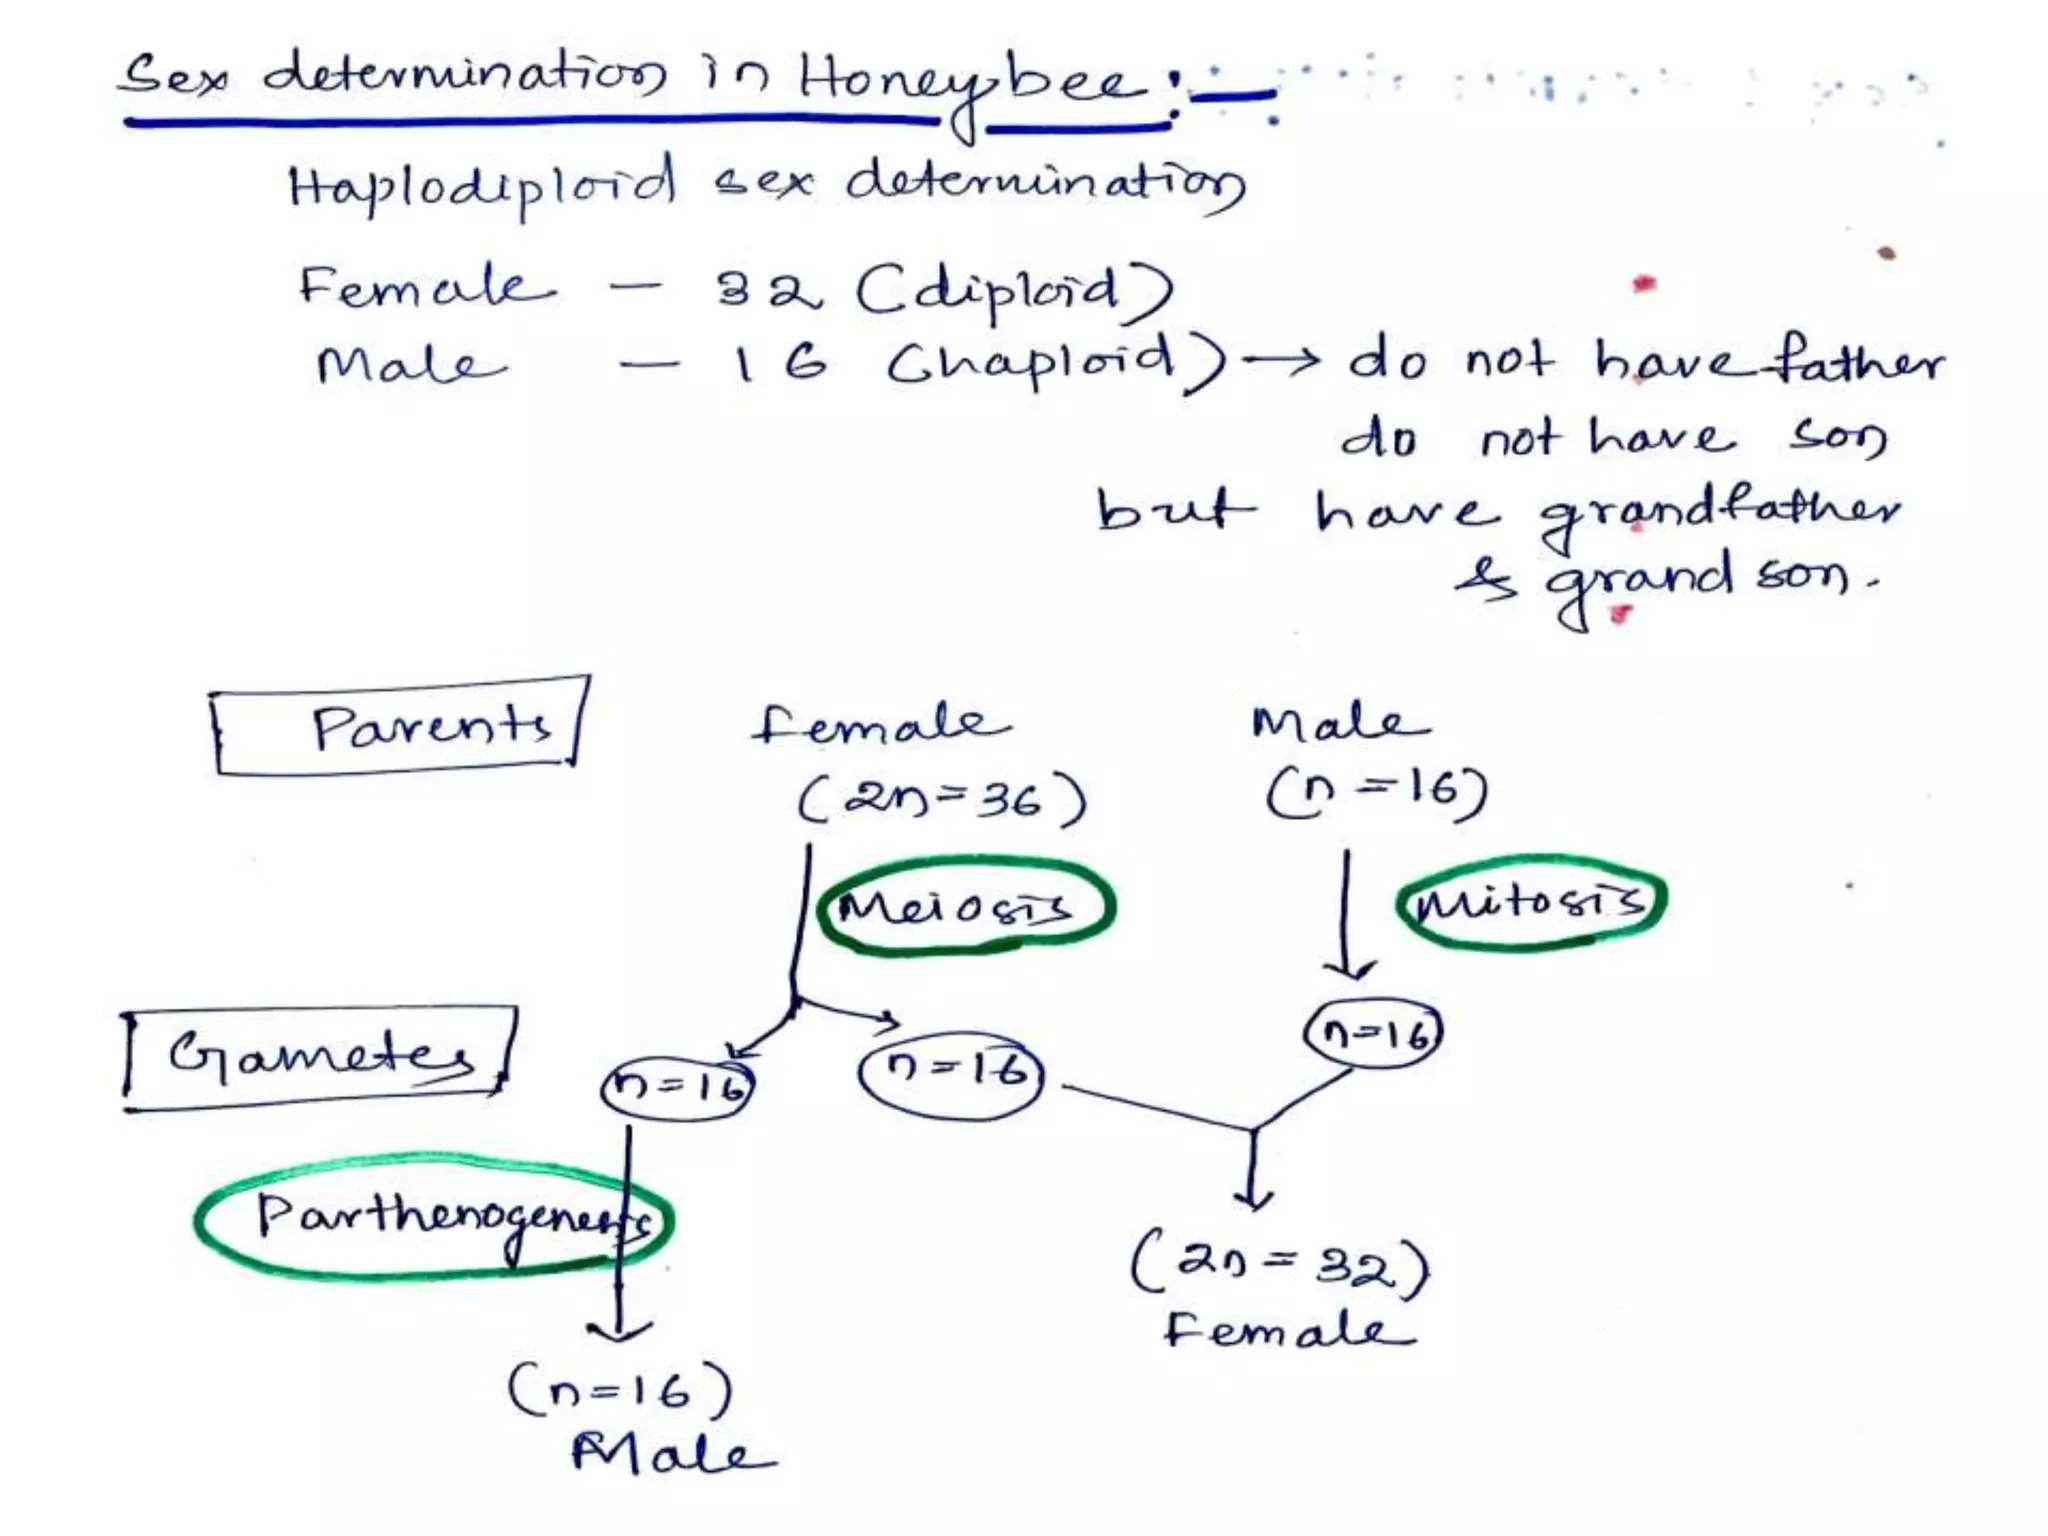 Sex determination in Honeybee :-
Haplodiploid sex determination
Female - 32 (diploid)
Male - 16 (haploid) → do not have father
do not have son
but have grandfather
& grand son.
Parents Female Male
(2n=36) (n=16)
Meiosis Mitosis
Gametes n=16 n=16 n=16
Parthenogenesis
(2n=32)
Female
(n=16)
Male